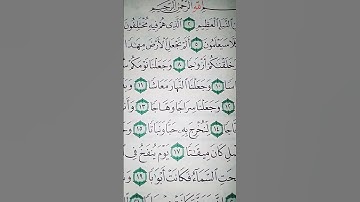 اللَّهِ الرَّحْمَٰنِ الرَّحِيمِ
النَّبَإِ الْعَظِيمِ ٢ الَّذِي هُمْ فِيهِ مُخْتَلِفُونَ
سَيَعْلَمُونَ ٥ أَلَمْ نَجْعَلِ الْأَرْضَ مِهَادًا
خَلَقْنَاكُمْ أَزْوَاجًا ٨ وَجَعَلْنَا نَوْمَكُمْ
١٠ وَجَعَلْنَا النَّهَارَ مَعَاشًا ١١
١٢ وَجَعَلْنَا سِرَاجًا وَهَّاجًا ١٣
١٤ لِنُخْرِجَ بِهِ حَبًّا وَنَبَاتًا ١٥
كَانَ مِيقَاتًا ١٧ يَوْمَ يُنْفَخُ فِي
السَّمَاءُ فَكَانَتْ أَبْوَابًا ١٩